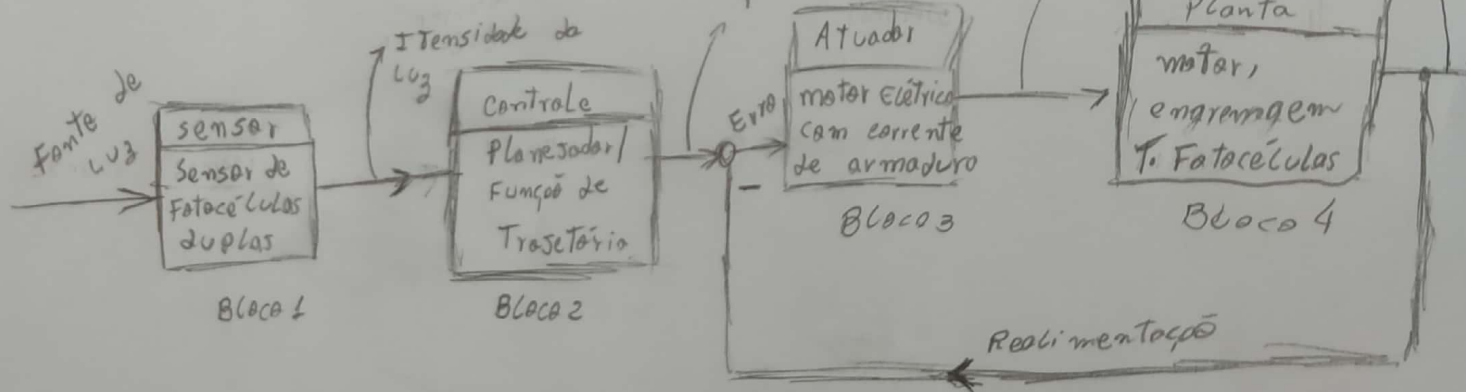 Fonte de
Luz
sensor
Sensor de
Fotocélulas
duplas
Bloco 1
Itensidade da
Luz
Controle
Planejador/
Função de
Trajetória
Bloco 2
Erro
-
Atuador
motor Elétrico
com corrente
de armaduro
Bloco 3
Planta
motor,
engrenagem
T. Fotocélulas
Bloco 4
Realimentação